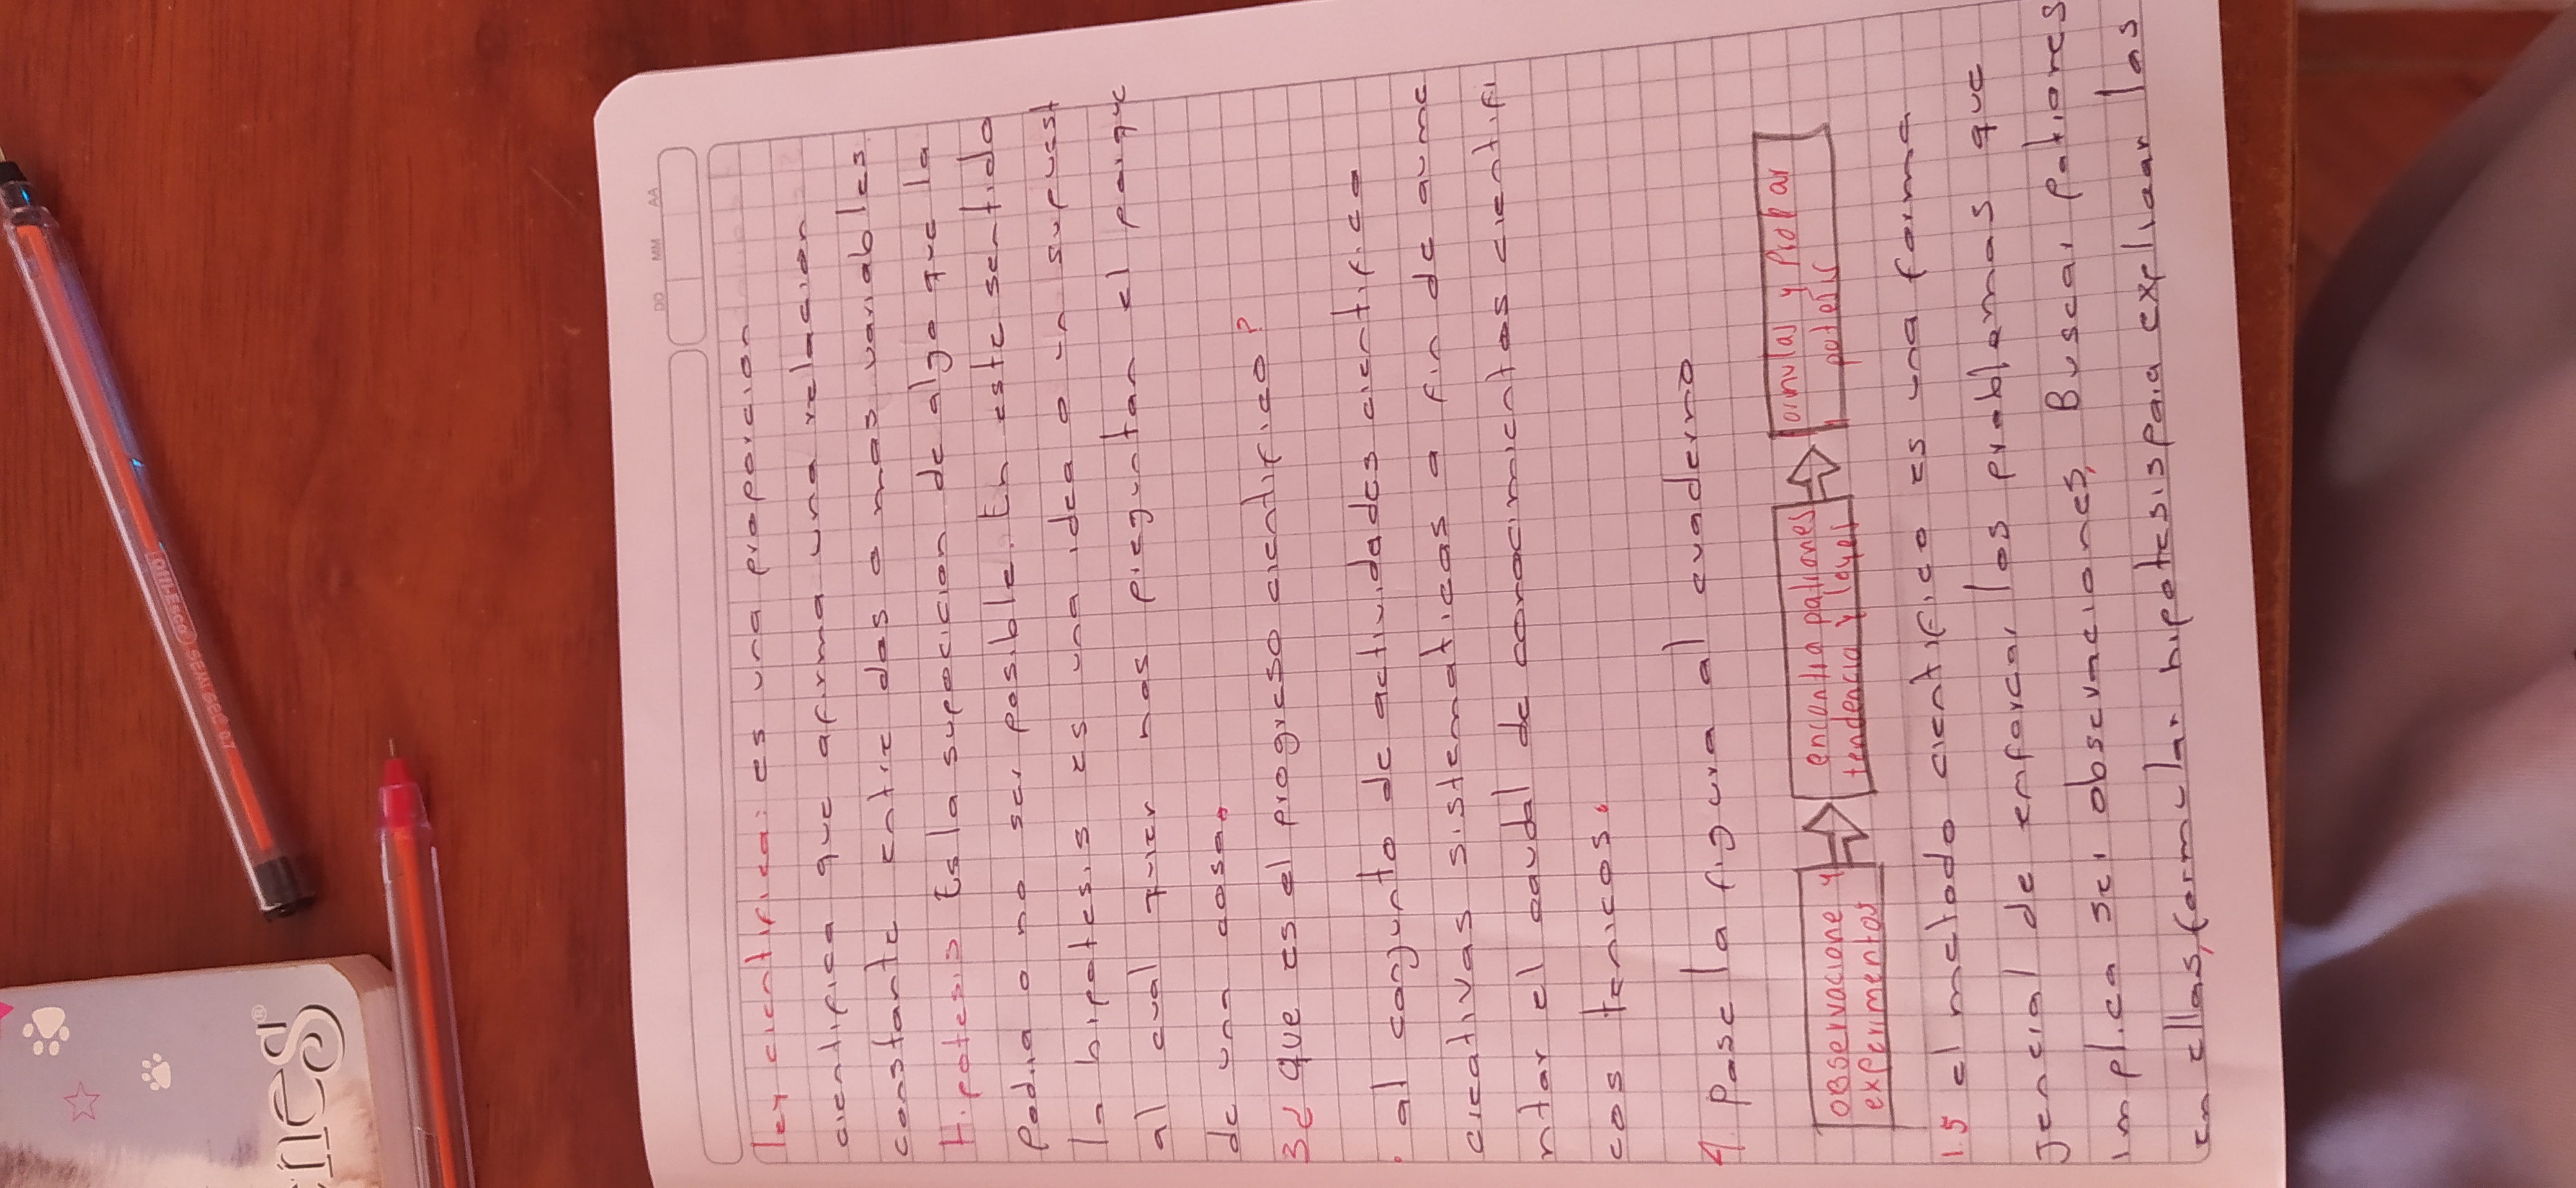 DD MM AA
ley cientifica: es una proporcion
cientifica que afirma una relacion
constante entre dos o mas variables
Hipotesis Es la supocicion de algo que la
Podria o no ser posible. En este sentido
la hipotesis es una idea o un supuest
al cual quier nos preguntan el porque
de una cosa.
3¿ que es el progreso cientifico?
. al conjunto de actividades cientifica
cicativas sistematicas a fin de aume
ntar el caudal de conocimientos cientifi
cos tenicos.
4. Pase la figura al cuaderno
OBSERVACIONE Y
experimentos
encuntra patrones
tendencia y leyes
ormular y Probar
potesis
1.5 el metodo cientifico es una forma
Jencial de enforcar los problemas que
implica ser observaciones, Buscar Patrones
en ellas, formular hipotesis para explicar las
LOTTI-Eco SEMI GEL 0.7